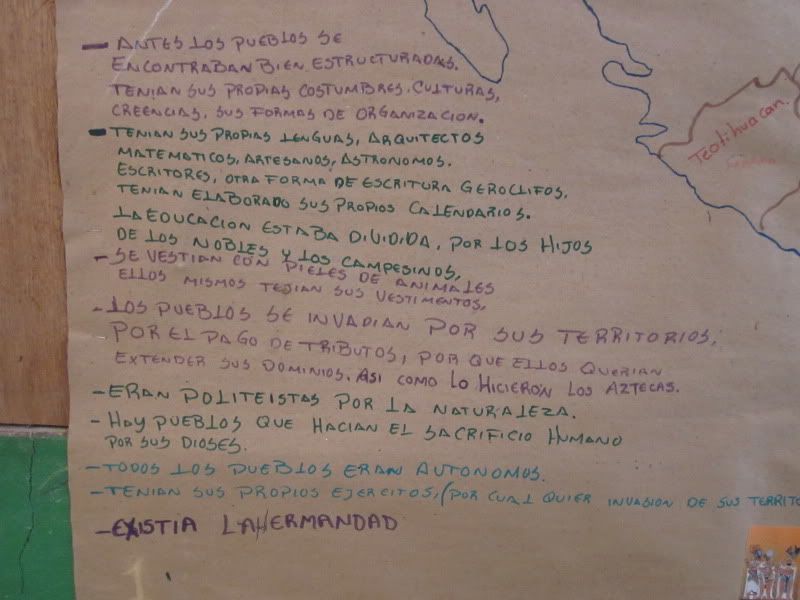 - ANTES LOS PUEBLOS SE
ENCONTRABAN BIEN ESTRUCTURADAS.
TENIAN SUS PROPIAS COSTUMBRES, CULTURAS,
CREENCIAS, SUS FORMAS DE ORGANIZACION.
- TENIAN SUS PROPIAS LENGUAS, ARQUITECTOS
MATEMATICOS, ARTESANOS, ASTRONOMOS.
ESCRITORES, OTRA FORMA DE ESCRITURA GEROCLIFOS.
TENIAN ELABORADO SUS PROPIOS CALENDARIOS.
LA EDUCACION ESTABA DIVIDIDA, POR LOS HIJOS
DE LOS NOBLES Y LOS CAMPESINOS,
- SE VESTIAN CON PIELES DE ANIMALES
ELLOS MISMOS TEJIAN SUS VESTIMENTOS,
- LOS PUEBLOS SE INVADIAN POR SUS TERRITORIOS,
POR EL PAGO DE TRIBUTOS, POR QUE ELLOS QUERIAN
EXTENDER SUS DOMINIOS. ASI COMO LO HICIERON LOS AZTECAS.
- ERAN POLITEISTAS POR LA NATURALEZA.
- HAY PUEBLOS QUE HACIAN EL SACRIFICIO HUMANO
POR SUS DIOSES.
- TODOS LOS PUEBLOS ERAN AUTONOMOS.
- TENIAN SUS PROPIOS EJERCITOS, (POR CUAL QUIER INVASION DE SUS TERRITO
- EXISTIA LA HERMANDAD
Teotihuacan.